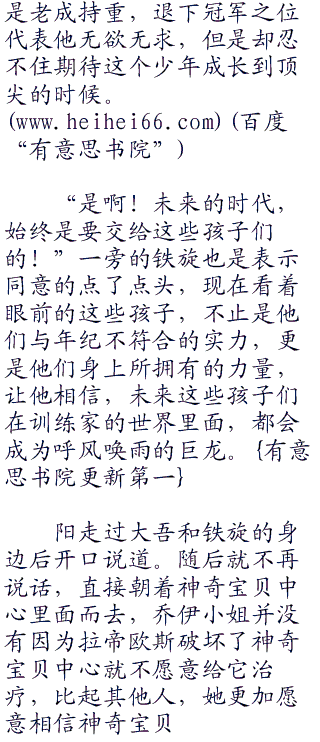 是老成持重，退下冠军之位
代表他无欲无求，但是却忍
不住期待这个少年成长到顶
尖的时候。
(www.heihei66.com)(百度
“有意思书院”)
“是啊！未来的时代，
始终是要交给这些孩子们
的！”一旁的铁旋也是表示
同意的点了点头，现在看着
眼前的这些孩子，不止是他
们与年纪不符合的实力，更
是他们身上所拥有的力量，
让他相信，未来这些孩子们
在训练家的世界里面，都会
成为呼风唤雨的巨龙。{有意
思书院更新第一}
阳走过大吾和铁旋的身
边后开口说道。随后就不再
说话，直接朝着神奇宝贝中
心里面而去，乔伊小姐并没
有因为拉帝欧斯破坏了神奇
宝贝中心就不愿意给它治
疗，比起其他人，她更加愿
意相信神奇宝贝